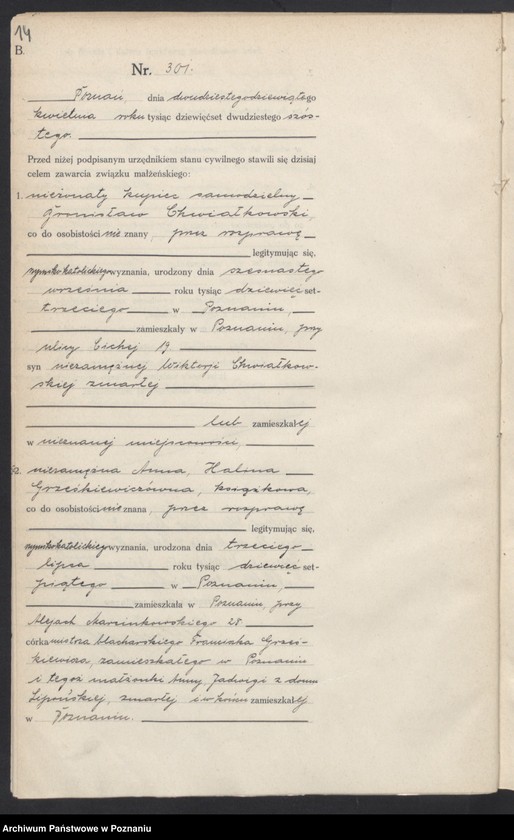 14
B.
Nr. 301.
Poznań, dnia dwudziestegodziewiątego
kwietnia roku tysiąc dziewięćset dwudziestego szós-
tego.
Przed niżej podpisanym urzędnikiem stanu cywilnego stawili się dzisiaj
celem zawarcia związku małżeńskiego:
1. nieżonaty kupiec samodzielny
Bronisław Chwiałkowski,
co do osobistości nie znany, przez rozprawę
legitymując się,
rzymskokatolickiego wyznania, urodzony dnia szesnastego
września roku tysiąc dziewięćset-
trzeciego w Poznaniu,
zamieszkały w Poznaniu, przy
ulicy Cichej 19
syn niezamężnej Wiktorji Chwiałkow-
skiej zmarłej
lub zamieszkałej
w nieznanej miejscowości,
2. niezamężna Anna, Halina
Grześkiewiczówna, książkowa,
co do osobistości nie znana, przez rozprawę
legitymując się,
rzymskokatolickiego wyznania, urodzona dnia trzeciego
lipca roku tysiąc dziewięćset-
piątego w Poznaniu,
zamieszkała w Poznaniu, przy
Alejach Marcinkowskiego 28
córka mistrza blacharskiego Franciszka Grześ-
kiewicza, zamieszkałego w Poznaniu
i tegoż małżonki Anny Jadwigi z domu
zmarłej i w końcu zamieszkałej
w Poznaniu.
Archiwum Państwowe w Poznaniu